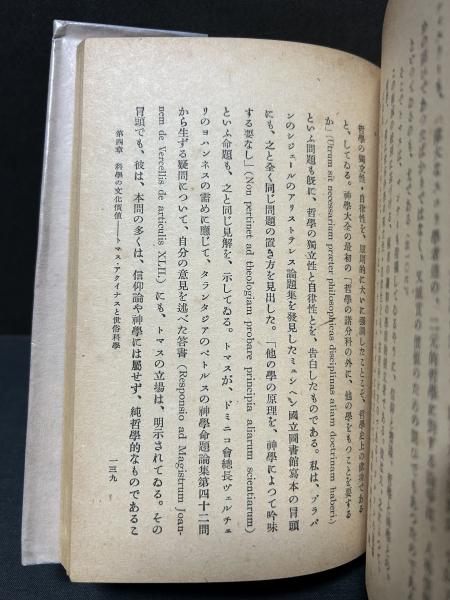 哲學の獨立性・自律性を、原則的に大いに強調したことこそ、哲學史上の偉業である
と、してゐる。神學大全の最初の「哲學の諸分科の外に、他の學をもつことを要する
か」(Utrum sit necessarium præter philosophicas disciplinas aliam doctrinam haberi)
といふ問題も既に、哲學の獨立性と自律性とを、告白したものである。私は、ブラバ
ンのシジェールのアリストテレス論題集を發見したミュンヘン國立圖書館寫本の冒頭
にも、之と全く同じ問題の置き方を見出した。「他の學の原理を、神學によつて吟味
する要なし」(Non pertinet ad theologiam probare principia aliarum scientiarum)
といふ命題も、之と同じ見解を、示してゐる。トマスが、ドミニコ會總長ヴェルチェ
リのヨハンネスの需めに應じて、タランタジアのペトルスの神學命題論集第四十二問
から生ずる疑問について、自分の意見を述べた答書 (Responsio ad Magistrum Joan-
nem de Vercellis de articulis XLII.) にも、トマスの立場は、明示されてゐる。その
冒頭でも、彼は、本問の多くは、信仰論や神學には屬せず、純哲學的なものであるこ
第四章 科學の文化價値——トマス・アクイナスと世俗科學
一三九